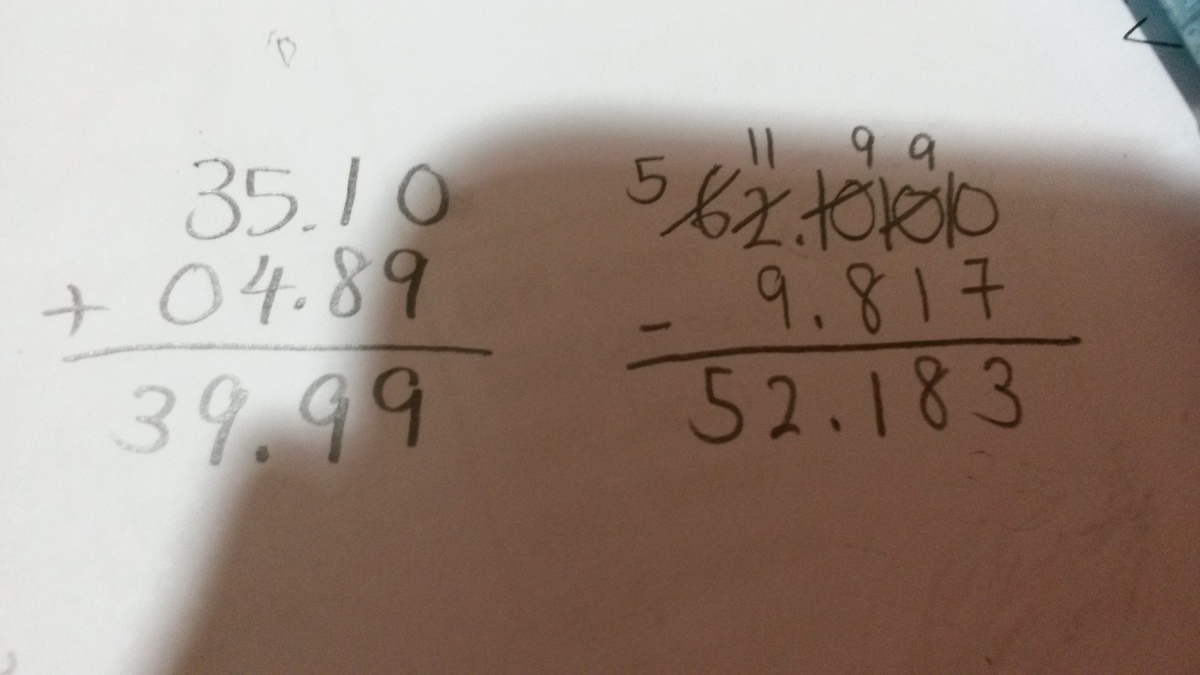 35.10
+ 04.89
39.99
11 9 9
5 62.101010
- 9.817
52.183